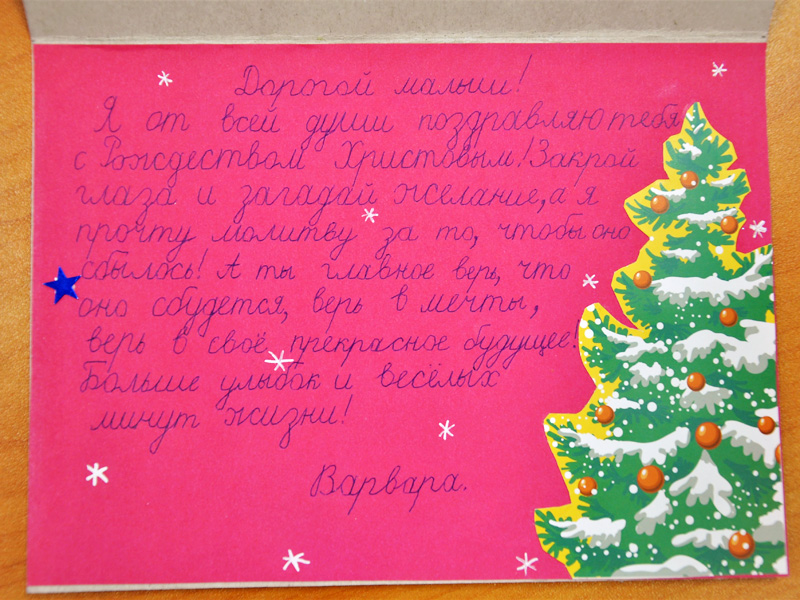 Дорогой малыш!
Я от всей души поздравляю тебя
с Рождеством Христовым! Закрой
глаза и загадай желание, а я
прочту молитву за то, чтобы оно
сбылось! А ты главное верь, что
оно сбудется, верь в мечты,
верь в своё прекрасное будущее!
Больше улыбок и весёлых
минут жизни!
Варвара.